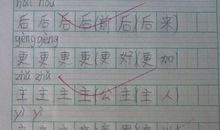 hái hòu
后后后后(前后)后来
gèng gèng
更更更更更好)更加
zhǔ zhǔ
主主主主(公主)主人
yì yí